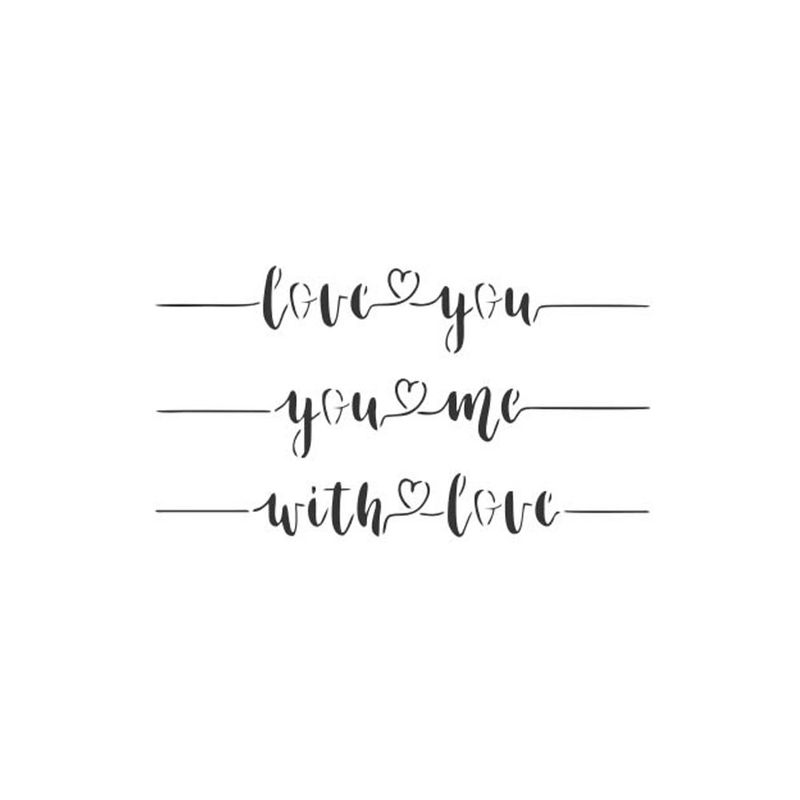 love you
you me
with love